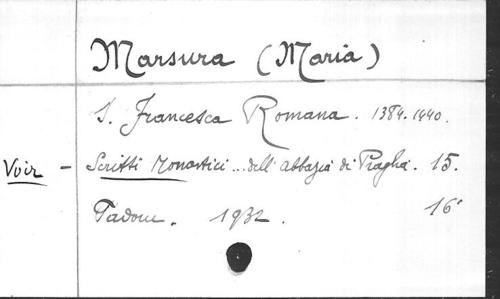 Marsura (Maria)
S. Francesca Romana. 1384-1440.
Voir - Scritti Monastici ... dell' abbazia di Praglia. 15.
Padoue. 1932. 16°